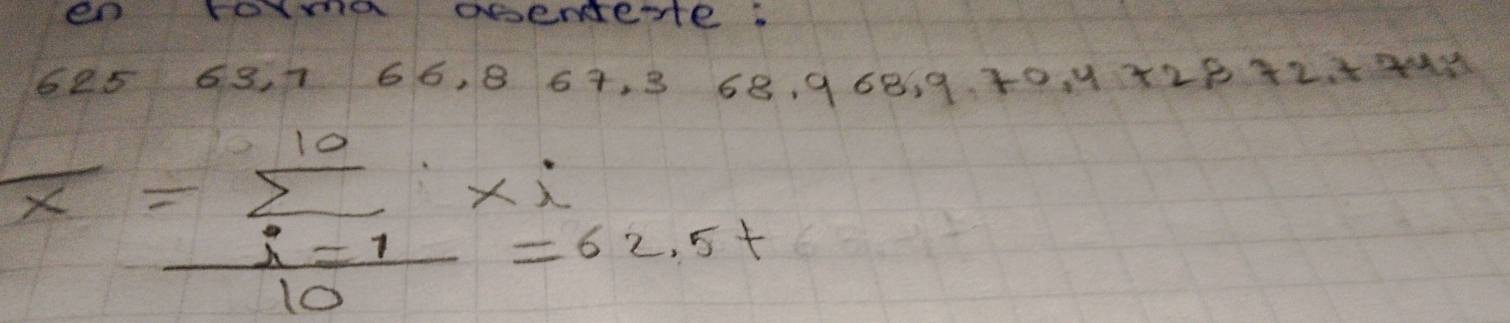 en forma asendente :
625 63,1 66,8 67,3 68,9 68,9 70,4 728 72,7 74,1
x̄ = 10 ∑ i=1 xi
10
= 62,5 +